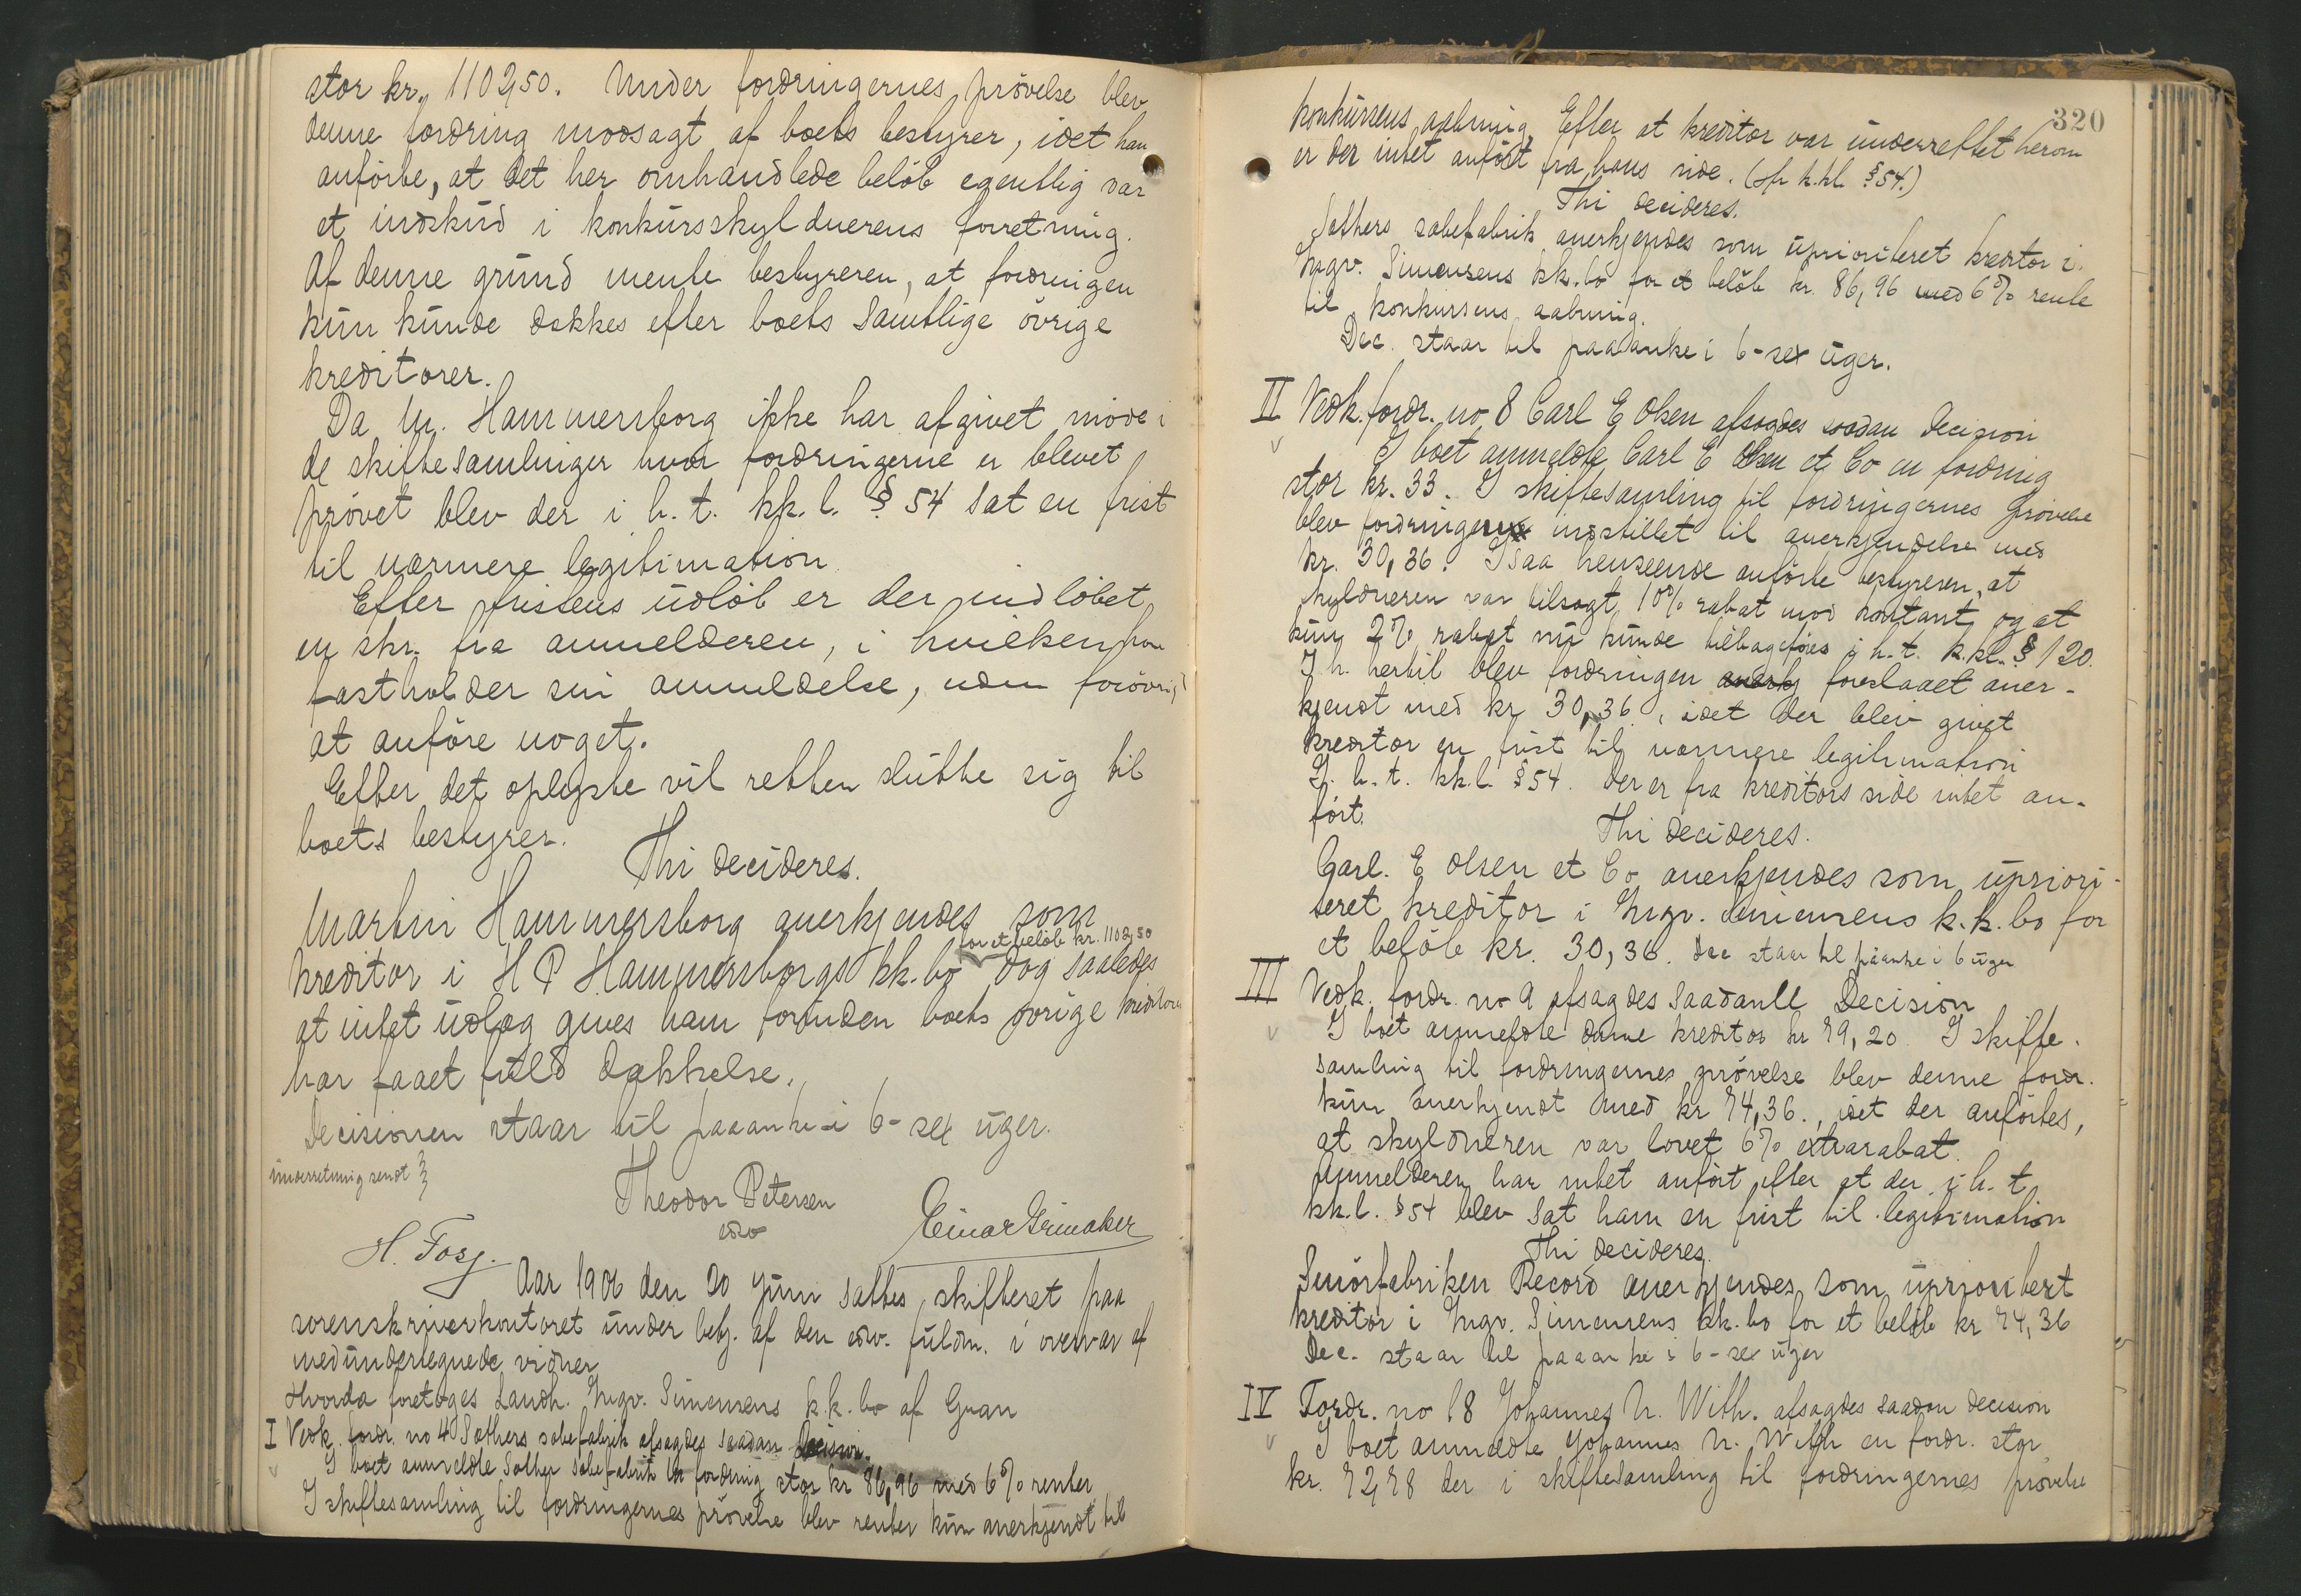 stor kr. 1102,50. Under fordringernes prövelse blev
denne fordring modsagt af boets bestyrer, idet han
anförte, at det her omhandlede belöb egentlig var
et indskud i konkursskyldnerens forretning.
Af denne grund mente bestyreren, at fordringen
kun kunde dækkes efter boets samtlige övrige
kreditorer.
Da M. Hammersborg ikke har afgivet möde i
de skiftesamlinger hvor fordringerne er blevet
prövet blev der i h. t. kk. l. § 54 sat en frist
til nærmere legitimation
Efter fristens udlöb er der indlöbet
en skr. fra anmelderen, i hvilken han
fastholder sin anmeldelse, uden forövrigt
at anföre noget.
Efter det oplyste vil retten slutte sig til
boets bestyrer.
Thi decideres.
Martin Hammersborg anerkjendes som
for et belöb kr. 1102,50
kreditor i H P Hammersborgs kk. bo dog saaledes
at intet udlæg gives ham forinden boets övrige kreditorer
har faaet fuld dækkelse.
Decisionen staar til paaanke i 6 - sex uger.
Underretning sendt
Theodor Petersen
edv
Einar Grinaker
H. Fosj.
Aar 1906 den 20 juni sattes skifteret paa
sorenskriverkontoret under bety. af den edv. fuldm. i overvær af
medundertegnede vidner
Hvorda foretoges Landh. Ingv. Simensens k.k. bo af Gran
I Vedk. fordr. no 4 Sæthers sæbefabrik afsagdes saadan Decision.
I boet anmeldte Sæther sæbefabrik en fordring stor kr 86,96 med 6% renter
I skiftesamling til fordringernes prövelse blev renter kun anerkjendt til
320
konkursens aabning. Efter at kreditor var underrettet herom
er der intet anfört fra hans side. (sfr k.kl. § 54.)
Thi decideres.
Sæthers sæbefabrik anerkjendes som uprioriteret kreditor i
Ingv. Simensens kk. bo for et belöb kr. 86,96 med 6% rente
til konkursens aabning.
Dec. staar til paaanke i 6 - sex uger.
II Vedk. fordr. no 8 Carl E Olsen afsagdes saadan decision
I boet anmeldte Carl E Olsen et Co en fordring
stor kr. 33. I skiftesamling til fordringernes prövelse
blev fordringen indstillet til anerkjendelse med
kr. 30,36. I saa henseende anförte bestyreren, at
skyldneren var tilsagt 10% rabat mod kontant og at
kun 2% rabat nu kunde tilbageföres i h. t. k.kl. § 120.
I h. hertil blev fordringen anerkj foreslaaet aner-
kjendt med kr 30,36, idet der blev givet
kreditor en frist til nærmere legitimation
I. h. t. kk.l. § 54. Der er fra kreditors side intet an-
fört.
Thi decideres.
Carl. E Olsen et Co anerkjendes som upriori-
teret kreditor i Ingv. Simensens k.k. bo for
et belöb kr. 30,36. Dec staar til paaanke i 6 uger
III Vedk. fordr. no 9 afsagdes saadan Decision
I boet anmeldte denne kreditor kr 79,20. I skifte-
samling til fordringernes prövelse blev denne fordr.
kun anerkjendt med kr 74,36., idet der anförtes,
at skyldneren var lovet 6% extrarabat.
Anmelderen har intet anfört efter at der i h. t
kk.l. § 54 blev sat ham en frist til legitimation
Thi decideres.
Smörfabriken Record anerkjendes som uprioritert
kreditor i Ingv. Simensens kk. bo for et belöb kr 74,36
Dec. staar til paaanke i 6 - sex uger
IV Fordr. no 18 Johannes N. With. afsagdes saadan decision
I boet anmeldte Johannes N. With en fordr. stor
kr. 72,78 der i skiftesamling til fordringernes prövelse